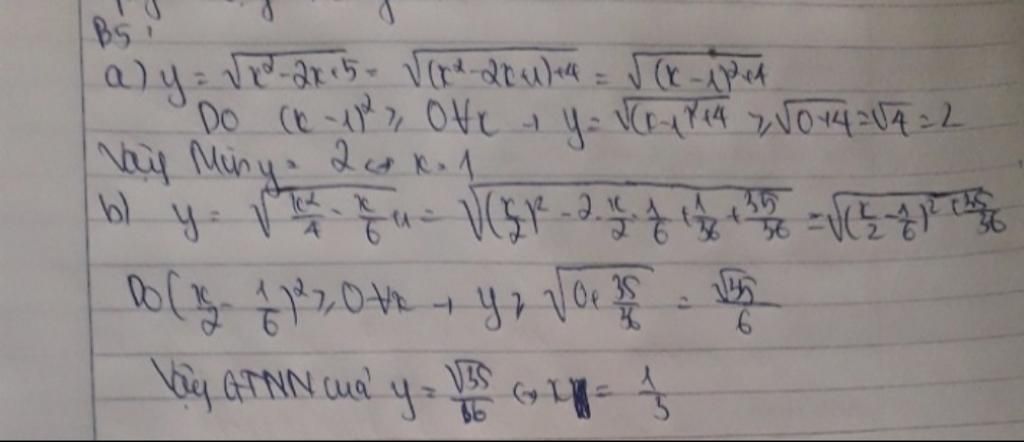 B5:
a) y = √(x² - 2x + 5) = √((x² - 2x + 1) + 4) = √((x - 1)² + 4)
Do (x - 1)² ≥ 0 ∀x → y = √((x - 1)² + 4) ≥ √(0 + 4) = √4 = 2
Vậy Min y = 2 ⇔ x = 1
b) y = √(x²/4 - x/6 + 1) = √((x/2)² - 2·x/2·1/6 + 1/36 + 35/36) = √((x/2 - 1/6)² + 35/36)
Do (x/2 - 1/6)² ≥ 0 ∀x → y ≥ √(0 + 35/36) = √35/6
Vậy GTNN của y = √35/36 ⇔ x = 1/3